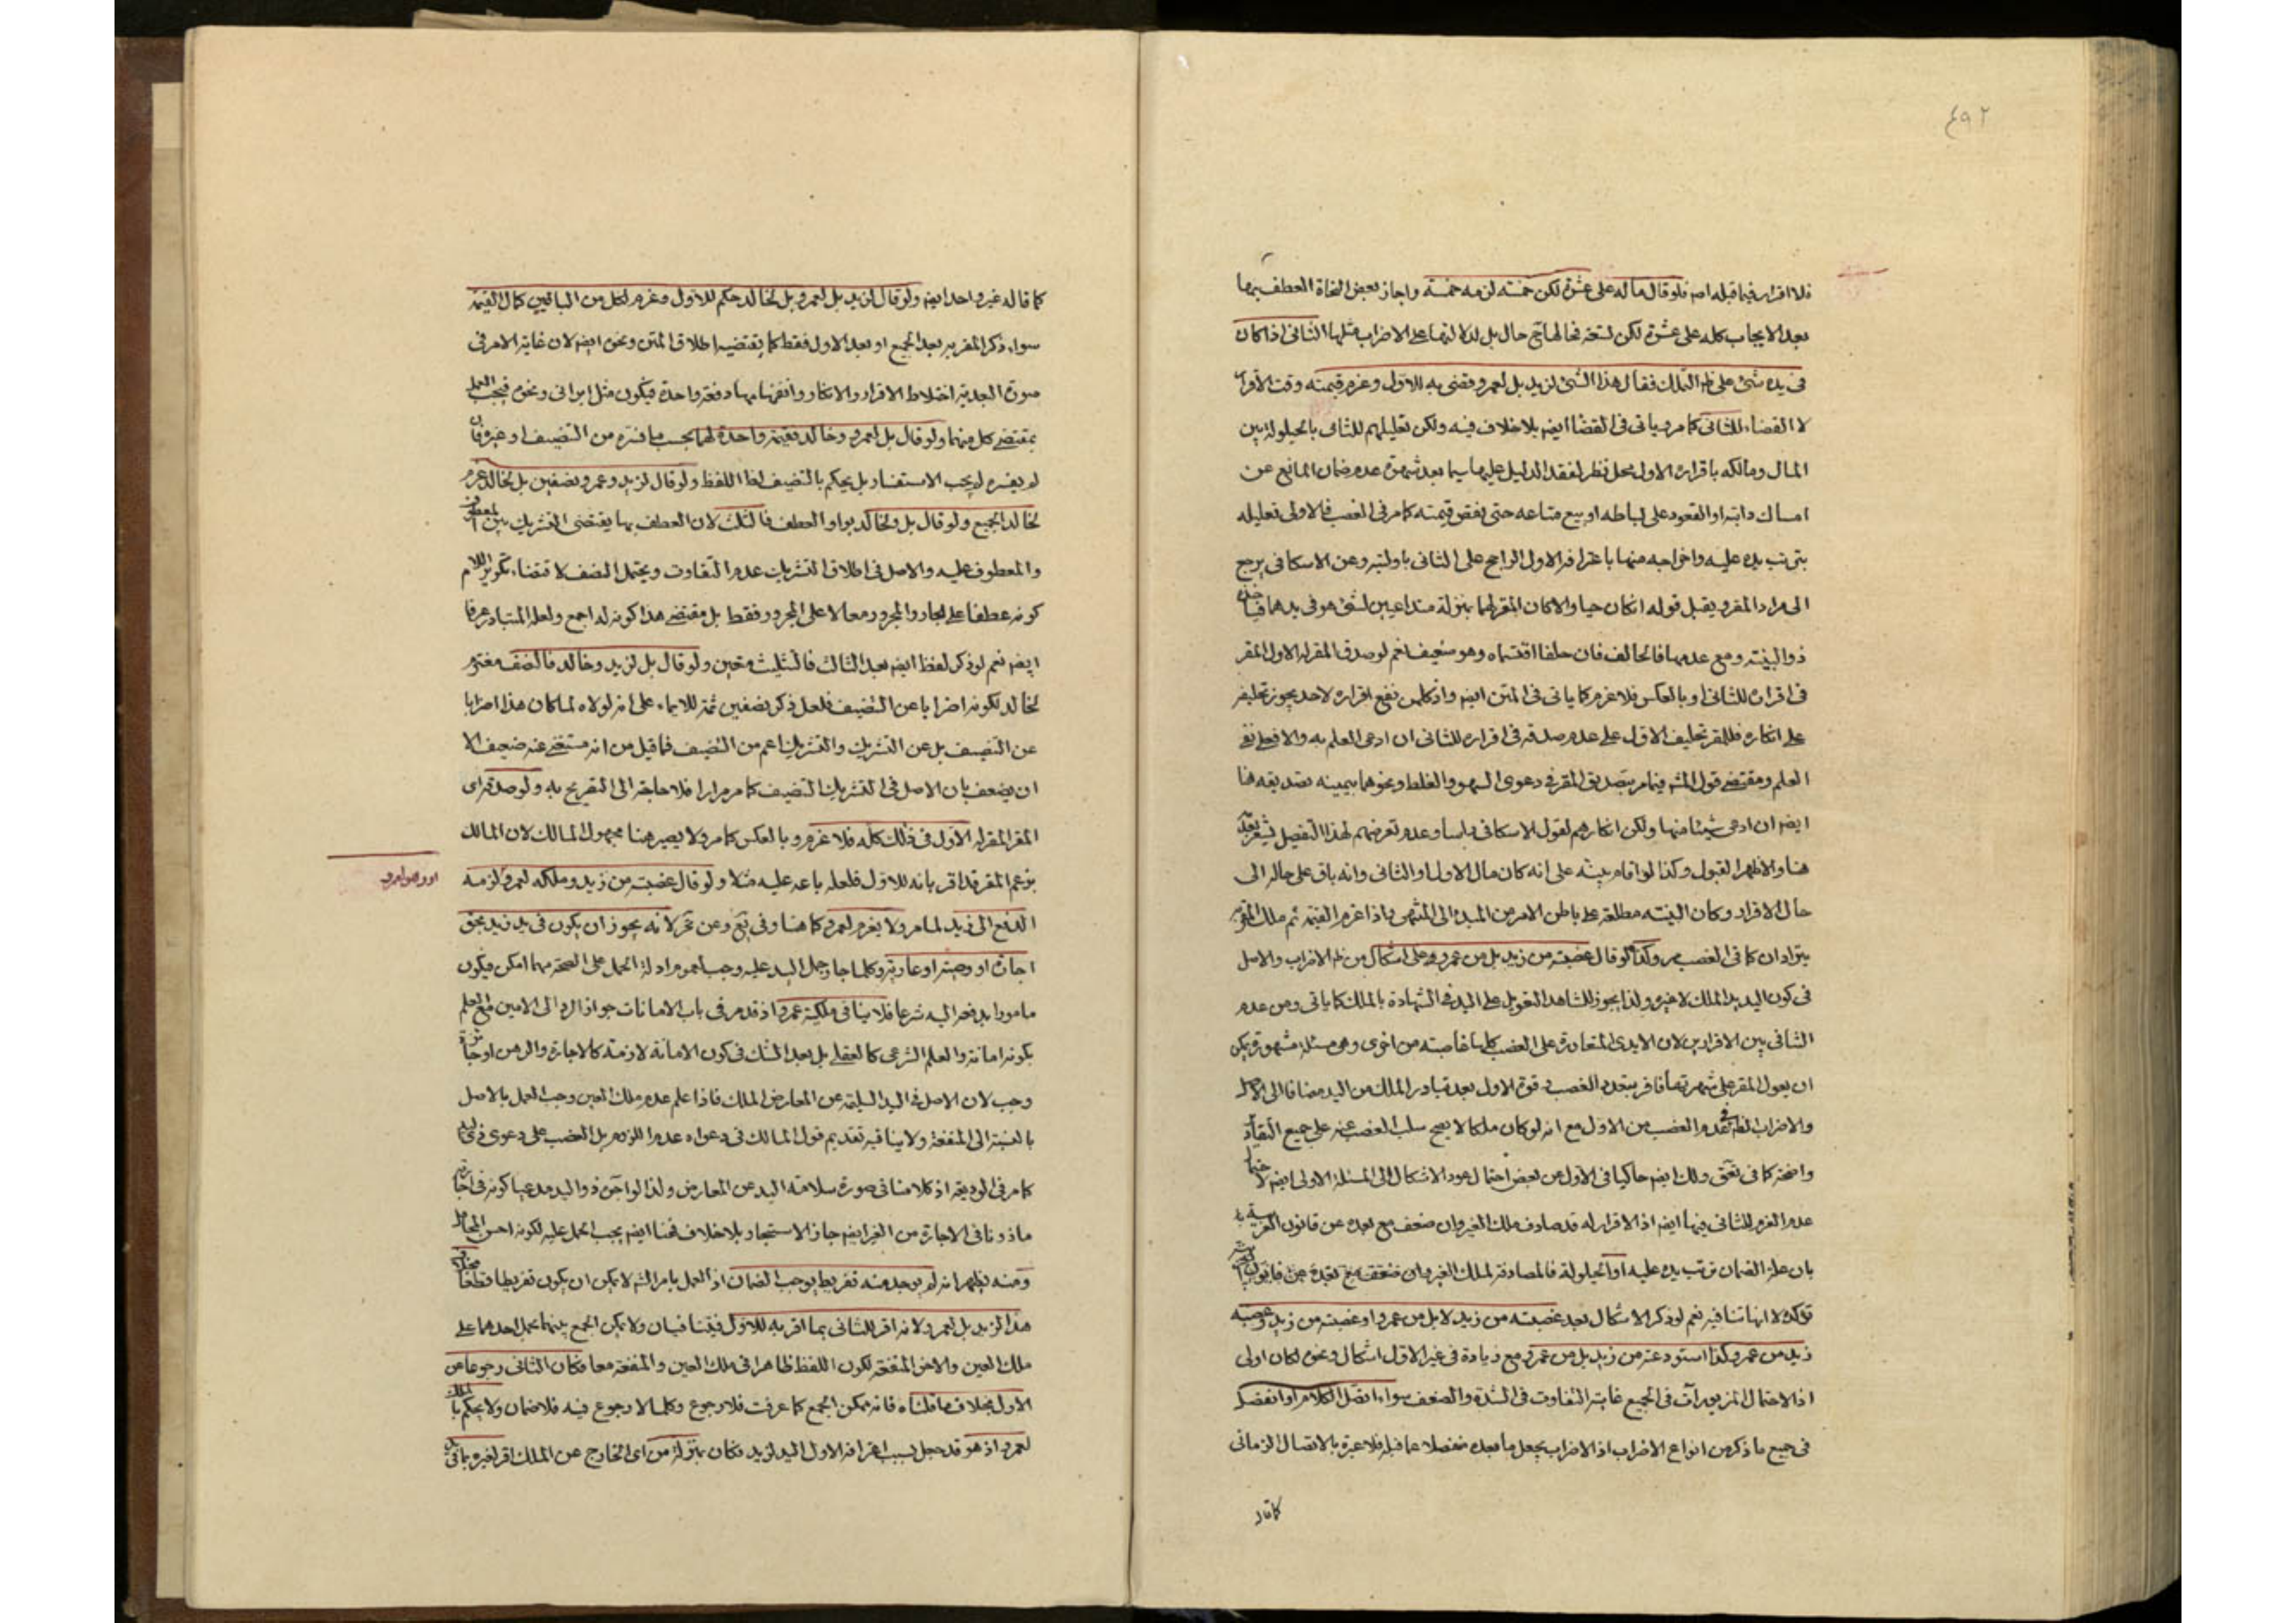 ٤٩٢
فلا اقرار فيما قبله اصلا فلو قال ماله على عشرة لكن خمسة لزمه خمسة واجاز بعض النحاة العطف بها
بعد الايجاب كله على عشرة لكن تسعة فحالها ح حال بل لدلالتها على الاضراب مثلها الثانى اذا كان
فى يده شئ على ظ التملك فقال هذا الشئ لزيد بل لعمرو قضى به للاول وغرم قيمته وقت الاقرار
لا القضاء للثانى كما مر وياتى فى القضا ايضا بلا خلاف فيه ولكن تعليلهم للثانى بالحيلولة بين
المال ومالكه باقراره الاول محل نظر لفقد الدليل عليها سيما بعد شهرة عدم ضمان المانع عن
امساك دابته او القعود على بساطه او بيع متاعه حتى نقص قيمته كما مر فى الغصب فالاولى تعليله
بترتب يده عليه واخراجه منها باعترافه الاول الراجح على الثانى باوليته وعن الاسكافى يرجع
الى مراد المقر ويقبل قوله ان كان حيا والا كان المقر لهما بمنزلة متداعيين لشئ هو فى يدهما فياخذه
ذو البينة ومع عدمها فالحالف فان حلفا اقتسماه وهو ضعيف نعم لو صدق المقر له الاول المقر
فى اقراره للثانى او بالعكس فلا غرم كما ياتى فى المتن ايضا واذ كل من نفع اقراره لاحد يجوز تحليفه
على انكاره فللمقر تحليف الاول على عدم صدقه فى اقراره للثانى ان ادعى العلم به والا فعلى نفى
العلم ومقتضى قول المشهور فيما مر بتصديق المقر فى دعوى السهو والغلط ونحوهما بيمينه تصديقه هنا
ايضا ان ادعى شيئا منها ولكن انكارهم لقول الاسكافى وعدم تعرضهم لهذا التفصيل يشعر بعدمه
هنا والاظهر القبول وكذا لو اقام بينة على انه كان مال الاول او الثانى وانه باق على حاله الى
حال الاقرار وكان البينة مطلعة على باطن الامر من المبدء الى المنتهى واذا غرم القيمة ثم ملك المقر به
يترادان كما فى الغصب وكذا لو قال غصبته من زيد بل من عمرو على اشكال من ظ الاضراب والاصل
فى كون اليد يد الملك لا غير ولذا يجوز للشاهد التعويل على اليد فى الشهادة بالملك كما ياتى ومن عدم
التنافى بين الاقرارين لان الايدى المتعاورة على الغصب كلها غاصبة من اخرى وهى مسئلة مشهورة يمكن
ان يعول المقر على شهرتها فاقر بتعدد الغصب وقوة الاول بعد تبادر الملك من اليد مضافا الى الاصل
والاضراب لظ فى تقدم الغصب من الاول مع انه لو كان ملكا لا يصح سلب الغصب عنه على جميع التقادير
واضحة كما فى تعق ولك ايضا حاكيا فى الاول عن بعض احتمال عود الاشكال الى المسئلة الاولى ايضا لاحتمال
عدم الغرم للثانى فيها ايضا اذ الاقرار له قد صادف ملك الغير وان ضعف مع بعده عن قانون العربية
بان علة الضمان ترتب يده عليه او الحيلولة فالمصادفة لملك الغير
تؤكده لا انها تنافيه نعم لو ذكر الاشكال بعد غصبته من زيد لا بل من عمرو او غصبته من زيد وغصبه
زيد من عمرو وكذا استودعته من زيد بل من عمرو مع زيادة فى غير الاول اشكال ونحوه لكان اولى
اذ الاحتمال المزبور آت فى الجميع غايته التفاوت فى الشدة والضعف سواء اتصل الكلام او انفصل
فى جميع ما ذكر من انواع الاضراب اذ الاضراب يجعل ما بعده منفصلا عما قبله فلا عبرة بالاتصال الزمانى
كما قاله
كما قاله غير واحد ايضا ولو قال لزيد بل لعمرو بل لخالد حكم للاول وغرم لكل من الباقيين كمال القيمة
سواء ذكر المقر به بعد الجميع او بعد الاول فقط كما يقتضيه اطلاق المتن ونحوه ايضا لان غاية الامر فى
صورة البعدية اختلاط الاقرار والانكار وانفهامهما دفعة واحدة فيكون مثل ابرانى ونحوه فيجب العمل
بمقتضى كل منهما ولو قال بل لعمرو وخالد فقيمة واحدة لهما بحسب ما فسره من التنصيف او غيره فان
لم يفسره لم يجب الاستفسار بل يحكم بالتنصيف لظ اللفظ ولو قال لزيد وعمرو نصفين بل لخالد غرم
لخالد الجميع ولو قال بل ولخالد بواو العطف فالثلث لان العطف بها يقتضى التشريك بين المعطوف
والمعطوف عليه والاصل فى اطلاق التشريك عدم التفاوت ويحتمل النصف لاقتضاء تكرير اللام
كونه عطفا على الجار والمجرور معا لا على المجرور فقط بل مقتضى هذا كونه له اجمع ولعله المتبادر عرفا
ايضا نعم لو ذكر لفظ ايضا بعد الثالث فالتثليث متعين ولو قال بل لزيد وخالد فالنصف مغترم
لخالد لكونه اضرابا عن التنصيف فلعل ذكر نصفين ثمة للايماء على انه لولاه لما كان هذا اضرابا
عن التنصيف بل عن التشريك والتشريك اعم من التنصيف فما قيل من انه مستغنى عنه ضعيف الا
ان يضعف بان الاصل فى التشريك التنصيف كما مر مرارا فلا حاجة الى التصريح به ولو صدقه اى
المقر المقر له الاول فى ذلك كله فلا غرم وبالعكس كما مر ولا يصير هنا مجهول المالك لان المالك
بزعم المقر قد اقر بانه للاول فلعله باعه عليه مثلا ولو قال غصبته من زيد وملكه لعمرو لزمه
الدفع الى زيد لما مر ولا يغرم لعمرو كما هنا وفى تع وعن تحر لانه يجوز ان يكون فى يد زيد بحق
اجارة او وصية او عارية وكلما جاز حمل اليد عليه وجب لعموم ادلة الحمل على الصحة مهما امكن فيكون
مامورا بدفعه اليه شرعا فلا ينافى ملكية عمرو اذ قد مر فى باب الامانات جواز الرد الى الامين مع العلم
بكونه امانة والعلم الشرعى كالعقلى بل بعد الشك فى كون الامانة لازمة كالاجارة والرهن او جائزة
وجب لان الاصل فى اليد السليمة عن المعارض الملك فاذا علم عدم ملك العين وجب العمل بالاصل
بالنسبة الى المنفعة ولا ينافيه تقديم قول المالك فى دعواه عدم اللزوم بل الغصب على دعوى ذى اليد
كما مر فى الوديعة اذ كلامنا فى صورة سلامة اليد عن المعارض ولذا لو آجر ذو اليد مدعيا كونه فى اجارته
ماذونا فى الاجارة من الغير ايضا جاز الاستيجار بلا خلاف فهنا ايضا يجب الحمل عليه لكونه احسن المحامل
ومنه يظهر انه لم يوجد منه تفريط يوجب الضمان اذ العمل بامر الشارع لا يمكن ان يكون تفريطا قطعا بخلاف
هذا لزيد بل لعمرو لانه اقر للثانى بما اقر به للاول فيتنافيان ولا يمكن الجمع بينهما بحمل احدهما على
ملك العين والاخر المنفعة لكون اللفظ ظاهرا فى ملك العين والمنفعة معا فكان الثانى رجوعا عن
الاول بخلاف ما قلناه فانه ممكن الجمع كما عرفت فلا رجوع وكلما لا رجوع فيه فلا ضمان ولا يحكم بالملك
لعمرو اذ هو قد جعل بسبب اعترافه الاول اليد لزيد فكان بمنزلة من اى الخارج عن الملك اقر لغيره بما فى